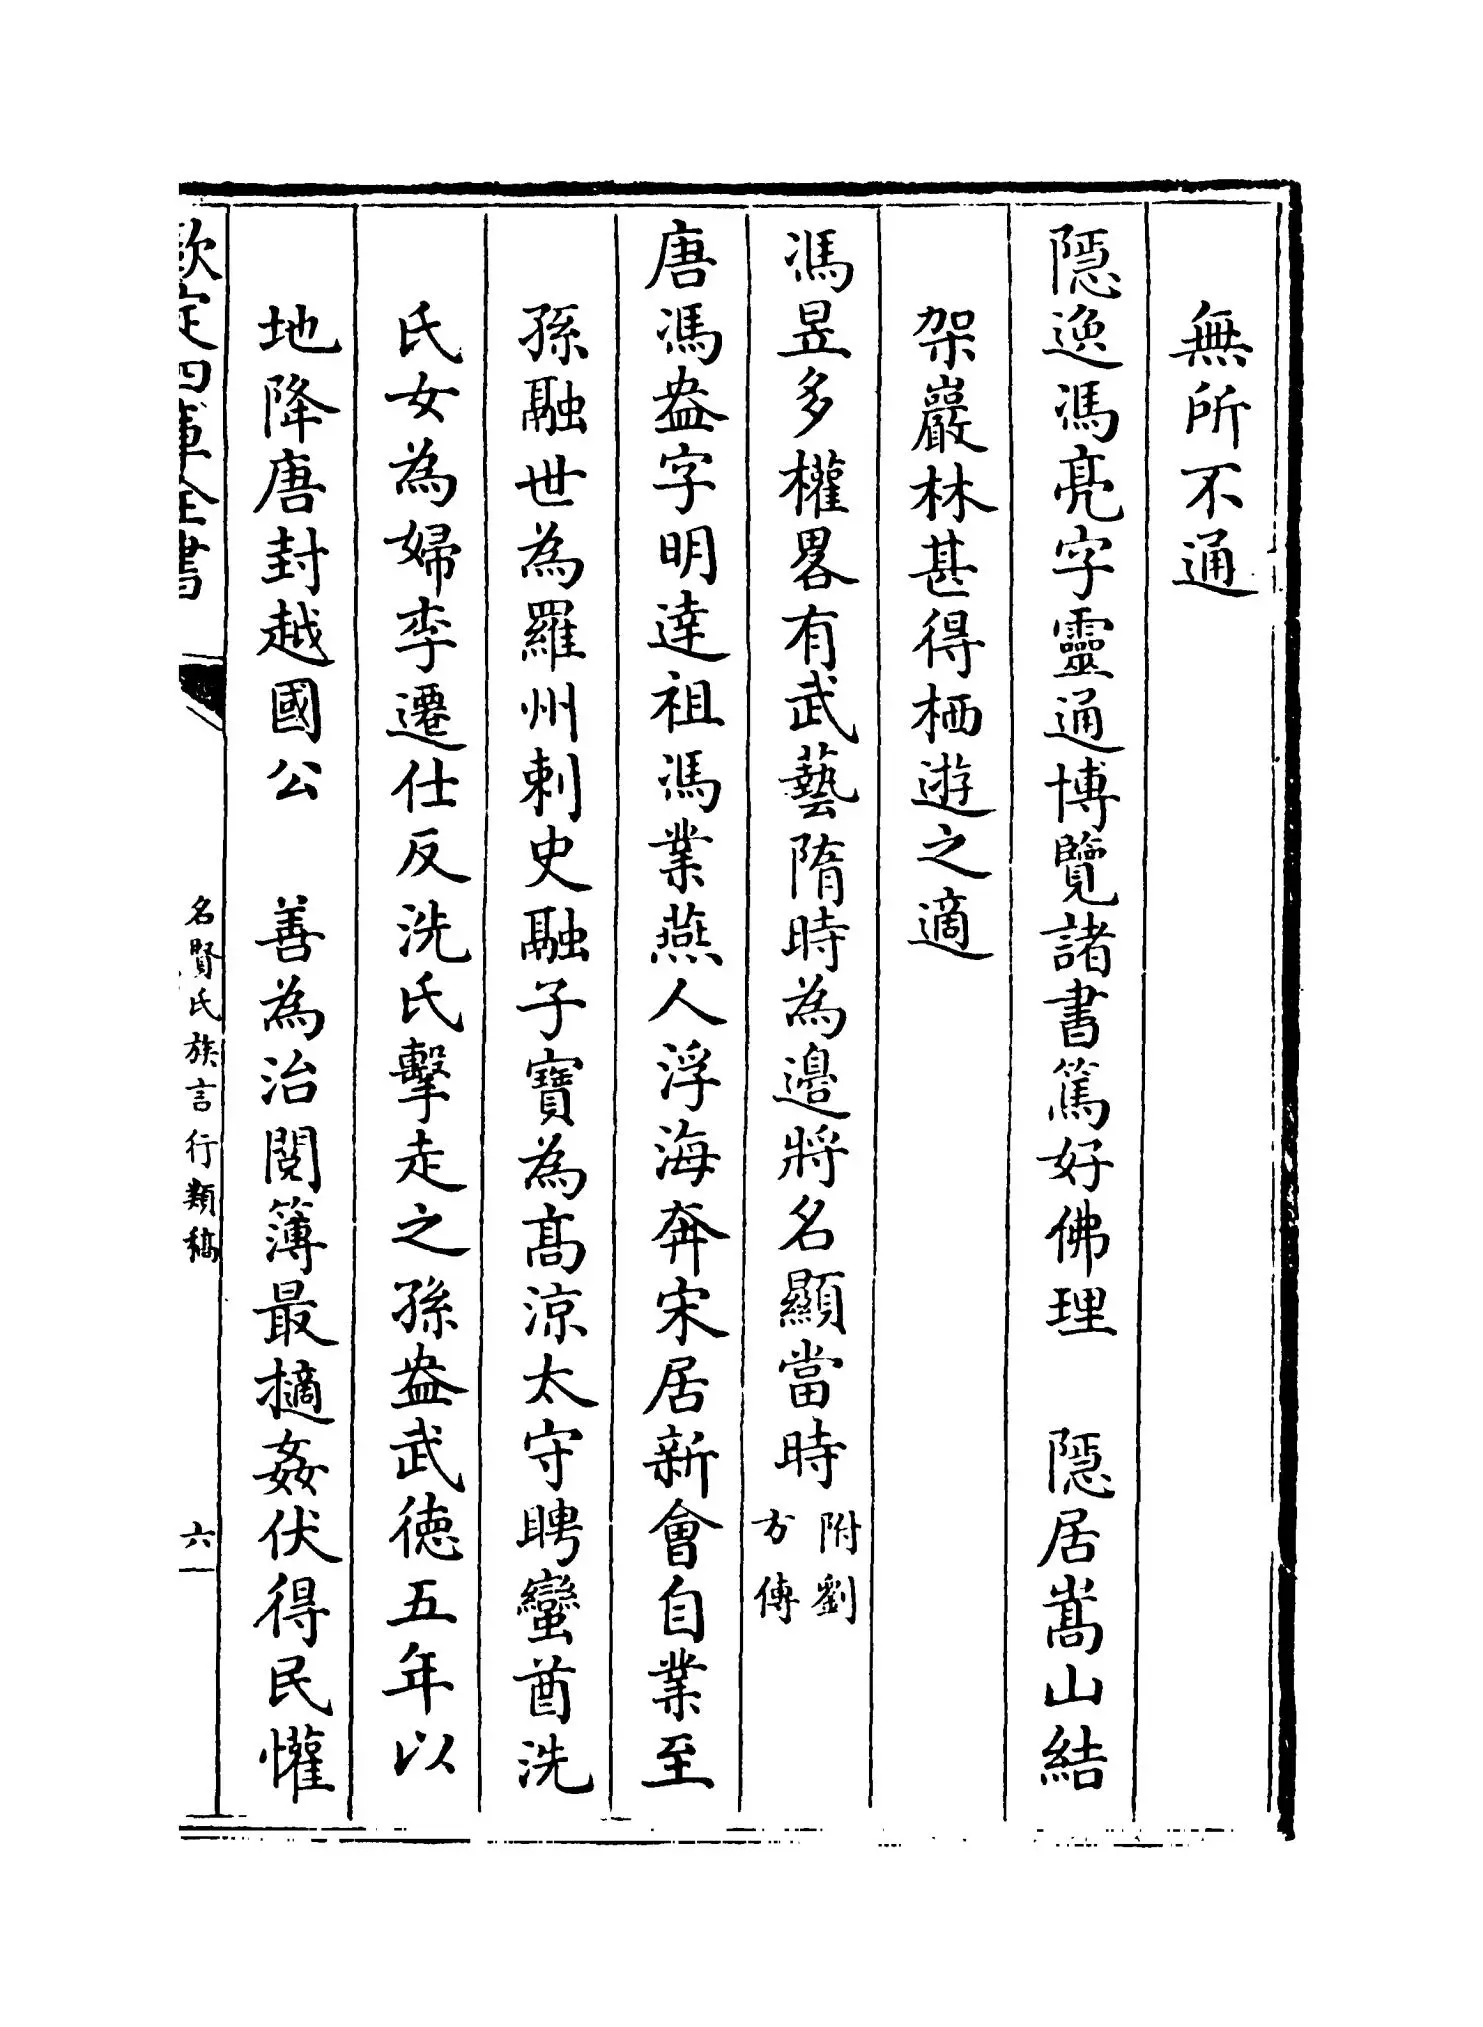 無所不通
隱逸馮亮字靈通博覽諸書篤好佛理　隱居嵩山結
架巖林甚得栖遊之適
馮昱多權畧有武藝隋時為邊將名顯當時附劉方傳
唐馮盎字明達祖馮業燕人浮海奔宋居新會自業至
孫融世為羅州刺史融子寶為高涼太守聘蠻酋洗
氏女為婦李遷仕反洗氏擊走之孫盎武徳五年以
地降唐封越國公　善為治閲簿最擿姦伏得民懽
欽定四庫全書　名賢氏族言行類稿　六